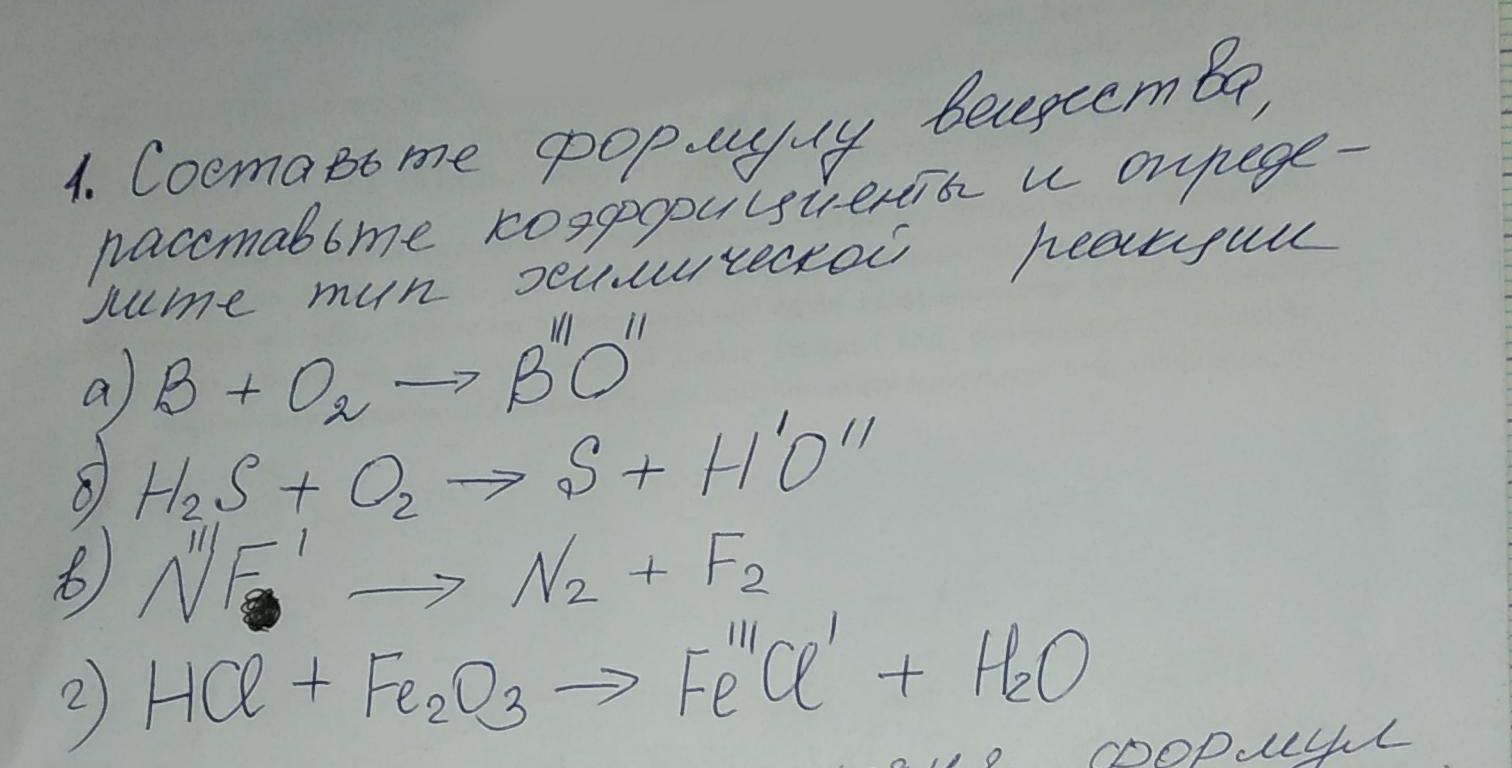 1. Составьте формулу вещества,
расставьте коэффициенты и опреде-
лите тип химической реакции
а) B + O₂ → BᴵᴵᴵOᴵᴵ
б) H₂S + O₂ → S + HᴵOᴵᴵ
в) NᴵᴵᴵFᴵ → N₂ + F₂
г) HCl + Fe₂O₃ → FeᴵᴵᴵClᴵ + H₂O
формул